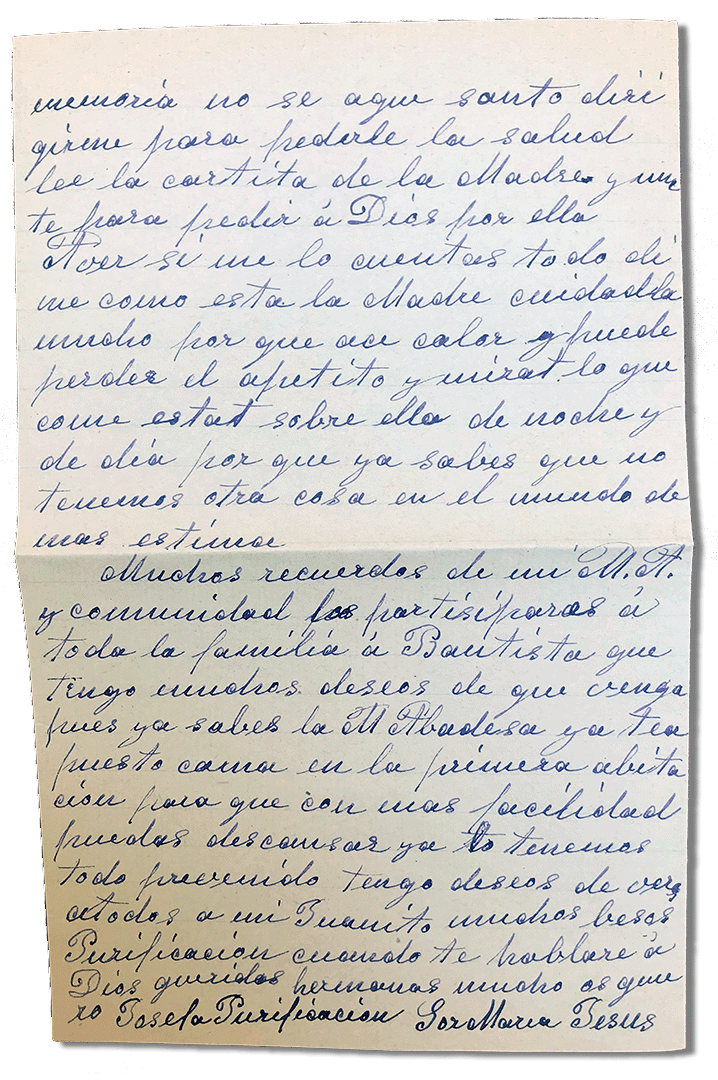 memoria no se aque santo diri
girme para pedirle la salud
lee la cartita de la Madre y un
te para pedir á Dios por ella
Aver si me lo cuentas todo di
me como esta la Madre cuidadla
mucho por que ace calor y puede
perder el apetito y mirat lo que
come estat sobre ella de noche y
de dia por que ya sabes que no
tenemos otra cosa en el mundo de
mas estima
Muchos recuerdos de mi M. A.
y comunidad los partisiparas á
toda la familia á Bautista que
tengo muchos deseos de que venga
pues ya sabes la M Abadesa ya tea
puesto cama en la primera abita
cion para que con mas facilidad
puedas descansar ya lo tenemos
todo prevenido tengo deseos de veros
atodos a mi Juanito muchos besos
Purificacion cuando te hablare á
Dios queridas hermanas mucho os quie
ro Josefa Purificacion Sor Maria Jesus